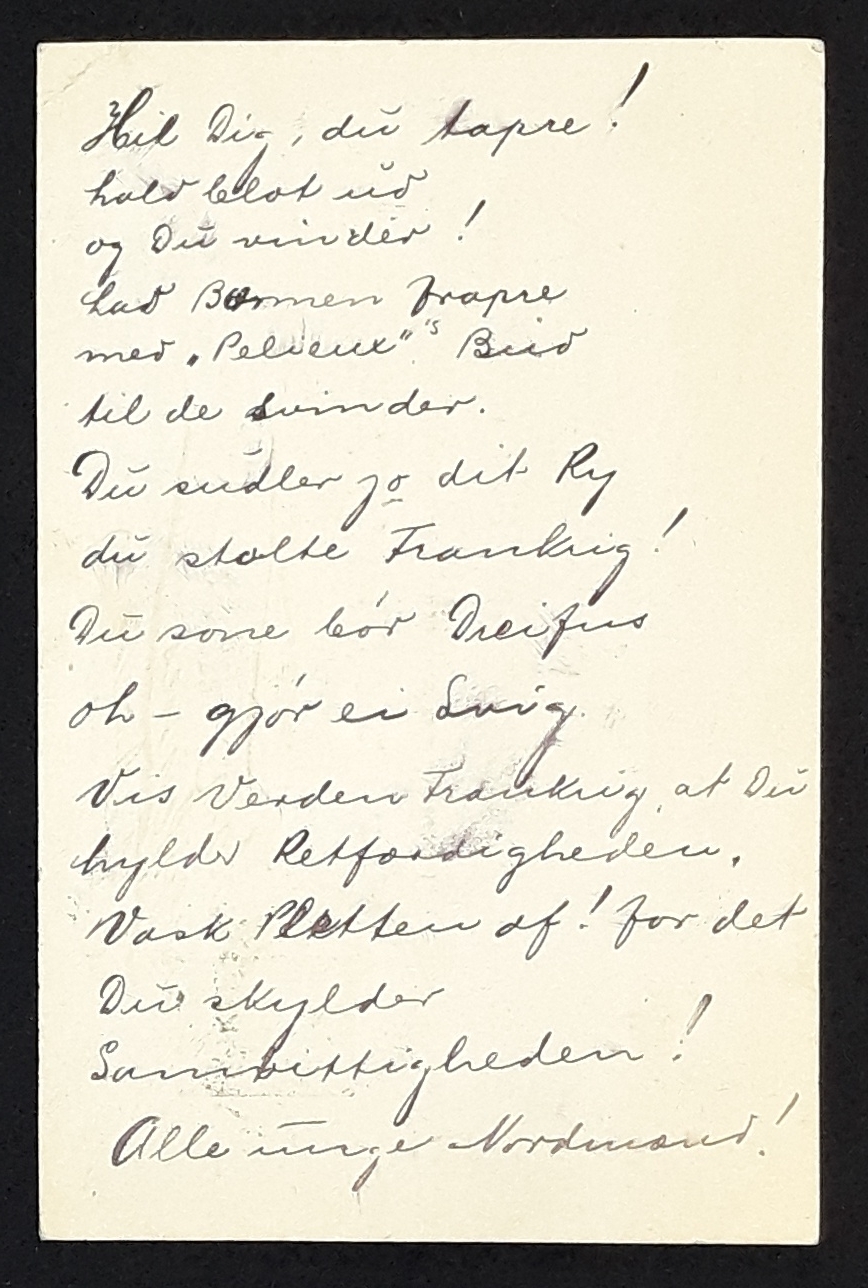 Hil Dig, du tapre!
hold blot ud
og Du vinder!
lad Barmen frapre
med „Pelieux"'s Bud
til de svinder.
Du sudler jo dit Ry
du stolte Frankrig!
Du sone bör Dreifus
oh - gjör ei Svig.
Vis Verden Frankrig, at Du
hylder Retfærdigheden.
Vask Pletten af! for det
Du skylder
Samvittigheden!
Alle unge Nordmænd!